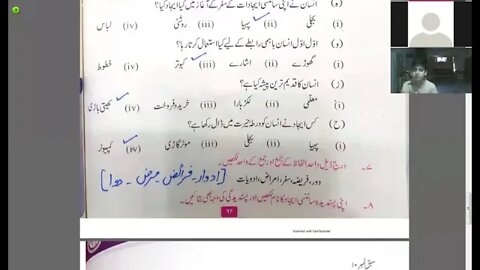 (ہ) انسان نے اپنی سائنسی ایجادات کے سفر کے آغاز میں کیا ایجاد کیا؟
(i) بجلی (ii) پہیا (iii) روشنی (iv) لباس
(و) اوّل اوّل انسان باہمی رابطے کے لیے کیا استعمال کرتا رہا؟
(i) گھوڑے (ii) اشارے (iii) کبوتر (iv) خطوط
(ز) انسان کا قدیم ترین پیشہ کیا ہے؟
(i) معلمی (ii) لکڑہارا (iii) خرید و فروخت (iv) کھیتی باڑی
(ح) کس ایجاد نے انسان کو ورطۂ حیرت میں ڈال رکھا ہے؟
(i) پہیا (ii) بجلی (iii) موٹر گاڑی (iv) کمپیوٹر
۷۔ درج ذیل واحد الفاظ کے جمع اور جمع کے واحد لکھیں۔
دور، فریضہ، سفر، امراض، ادویات [ادوار۔ فرائض۔ مرض۔ دوا]
۸۔ اپنی پسندیدہ سائنسی ایجاد کا نام لکھیں اور پسندیدگی کی وجہ بھی بتائیں۔
۹۲
Scanned with CamScanner
سبق نمبر ۱۰